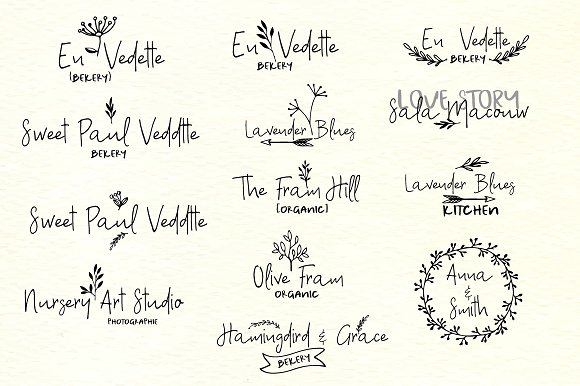 En Vedette
(BEKERY)
En Vedette
BEKERY
En Vedette
BEKERY
Sweet Paul Veddtte
BEKERY
Lavender Blues
LOVE STORY
Sala Maconw
Sweet Paul Veddtte
The Fram Hill
(ORGANIC)
Lavender Blues
KITCHEN
Nursery Art Studio
PHOTOGRAPHIE
Olive Fram
ORGANIC
Anna
&
Smith
Hamingdird & Grace
BEKERY